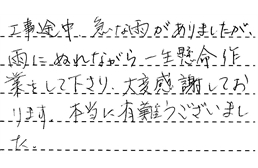 工事途中、急な雨がありましたが、
雨にぬれながら一生懸命作
業をして下さり、大変感謝してお
ります。本当に有難うございまし
た。